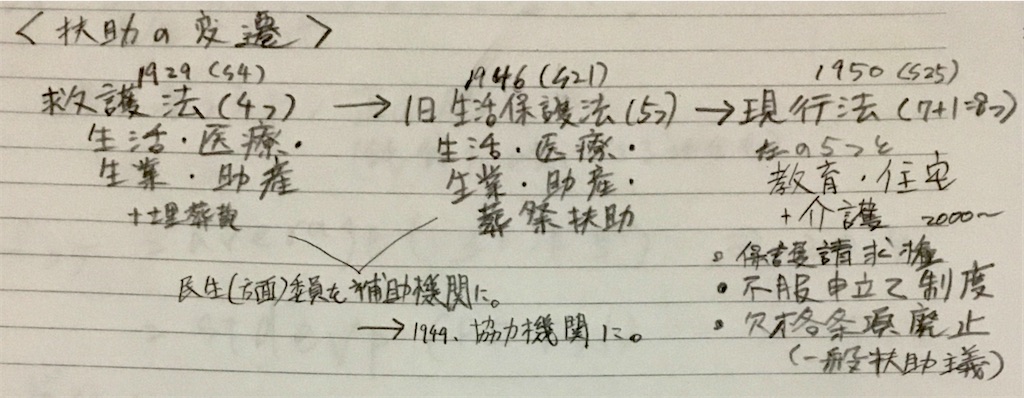 ＜扶助の変遷＞
1929（S4） 1946（S21） 1950（S25）
救護法（4つ）→旧生活保護法（5つ）→現行法（7+1=8つ）
生活・医療・ 生活・医療・ 左の5つと
生業・助産 生業・助産・ 教育・住宅
+埋葬費 葬祭扶助 +介護 2000〜
・保護請求権
民生（方面）委員を補助機関に。 ・不服申立て制度
→1949、協力機関に。 ・欠格条項廃止
（一般扶助主義）